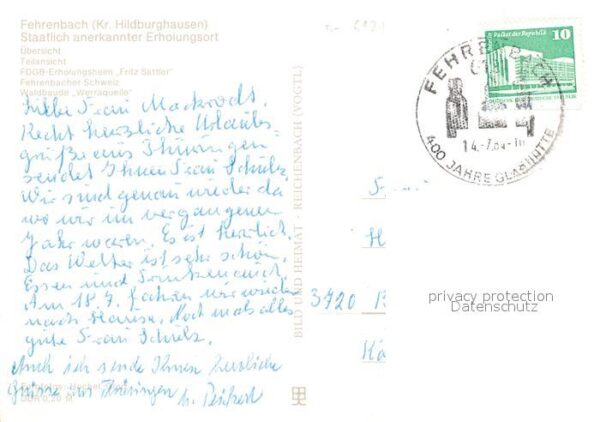 Fehrenbach (Kr. Hildburghausen)
Staatlich anerkannter Erholungsort
Übersicht
Teilansicht
FDGB-Erholungsheim „Fritz Sattler"
Fehrenbacher Schweiz
Waldbaude „Werraquelle"
Liebe Frau Mackrodt.
Recht herzliche Urlaubs-
grüße aus Thüringen
sendet Ihnen Frau Schulz.
Wir sind genau wieder da
wo wir im vergangenen
Jahr waren. Es ist herrlich.
Das Wetter ist sehr schön.
Essen und Trinken auch.
Am 18.7. fahren wir wieder
nach Hause. Noch mals alles
gute Frau Schulz.
Auch ich sende Ihnen herzliche
Grüsse aus Thüringen
DDR 0,20 M
BILD UND HEIMAT · REICHENBACH (VOGTL)
FEHRENBACH
14.-7.89-
400 JAHRE GLASHÜTTE
Palast der Republik
10
3720
privacy protection
Datenschutz